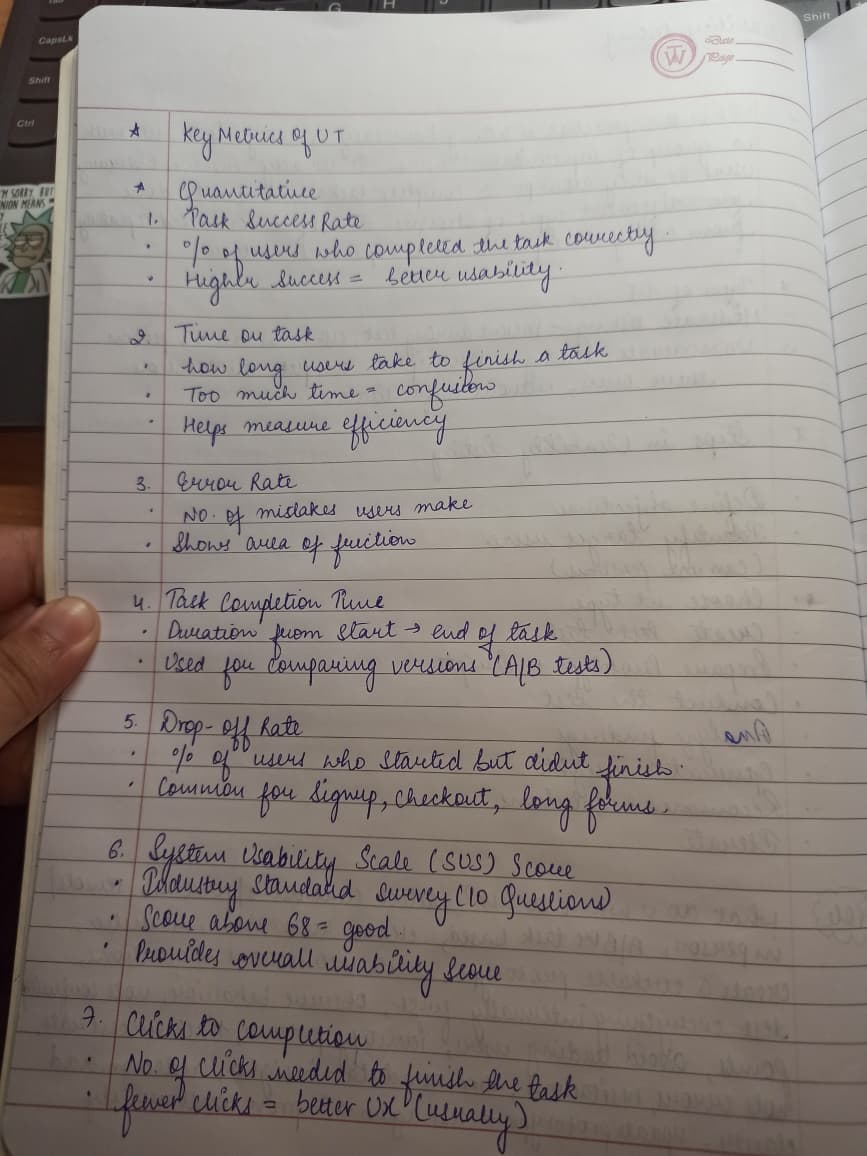 CapsLk
Shift
Ctrl
G
H
Shift
TW
Date
Page
Key Metrics of UT
Quantitative
1. Task Success Rate
• % of users who completed the task correctly.
• Higher Success = better usability.
2. Time on task
• how long users take to finish a task
• Too much time = confusion
• Helps measure efficiency
3. Error Rate
• No. of mistakes users make
• Shows area of friction
4. Task Completion Time
• Duration from start → end of task
• Used for comparing versions (A/B tests)
5. Drop-off Rate
• % of users who started but didnt finish.
• Common for Signup, checkout, long forms.
6. System Usability Scale (SUS) Score
• Industry Standard survey (10 Questions)
• Score above 68 = good.
• Provides overall usability score
7. Clicks to completion
• No. of clicks needed to finish the task
• fewer clicks = better UX (usually)